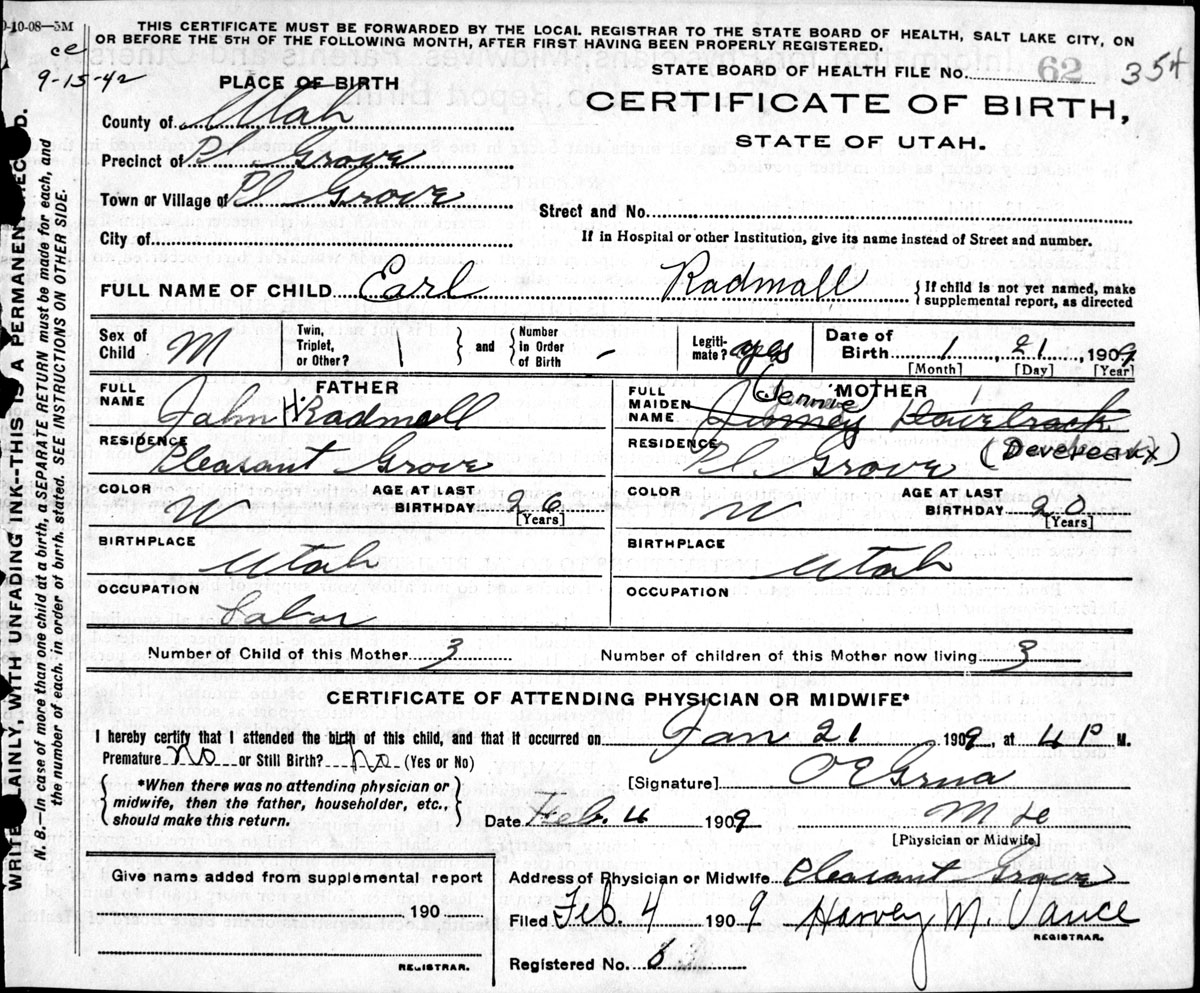 0-10-08—5M
THIS CERTIFICATE MUST BE FORWARDED BY THE LOCAL REGISTRAR TO THE STATE BOARD OF HEALTH, SALT LAKE CITY, ON
OR BEFORE THE 5TH OF THE FOLLOWING MONTH, AFTER FIRST HAVING BEEN PROPERLY REGISTERED.
ce
9-15-42
PLACE OF BIRTH
STATE BOARD OF HEALTH FILE No. 62 354
County of Utah
CERTIFICATE OF BIRTH,
Precinct of Pl Grove
STATE OF UTAH.
Town or Village of Pl Grove
Street and No.
City of
If in Hospital or other Institution, give its name instead of Street and number.
FULL NAME OF CHILD Earl Radmall { If child is not yet named, make
supplemental report, as directed
Sex of Child M Twin, Triplet, or Other? } and { Number in Order of Birth - Legiti-mate? yes Date of Birth 1 21, 1909
[Month] [Day] [Year]
FULL NAME FATHER John H. Radmall
FULL MAIDEN NAME MOTHER Jennie
RESIDENCE Pleasant Grove
RESIDENCE Pl. Grove (Devereaux)
COLOR W AGE AT LAST BIRTHDAY 26 [Years]
COLOR W AGE AT LAST BIRTHDAY 20 [Years]
BIRTHPLACE Utah
BIRTHPLACE Utah
OCCUPATION Labor
OCCUPATION
Number of Child of this Mother 3 Number of children of this Mother now living 3
CERTIFICATE OF ATTENDING PHYSICIAN OR MIDWIFE*
I hereby certify that I attended the birth of this child, and that it occurred on Jan 21 1909, at 4 P M.
Premature No or Still Birth? No (Yes or No)
[Signature] O E Grua
{ *When there was no attending physician or
midwife, then the father, householder, etc.,
should make this return. }
Date Feb. 4 1909
[Physician or Midwife]
Give name added from supplemental report
190
REGISTRAR.
Address of Physician or Midwife Pleasant Grove
Filed Feb. 4 1909 Harvey M. Vance
REGISTRAR.
Registered No.
WRITE PLAINLY, WITH UNFADING INK--THIS IS A PERMANENT RECORD.
N. B.—In case of more than one child at a birth, a SEPARATE RETURN must be made for each, and
the number of each, in order of birth, stated. SEE INSTRUCTIONS ON OTHER SIDE.